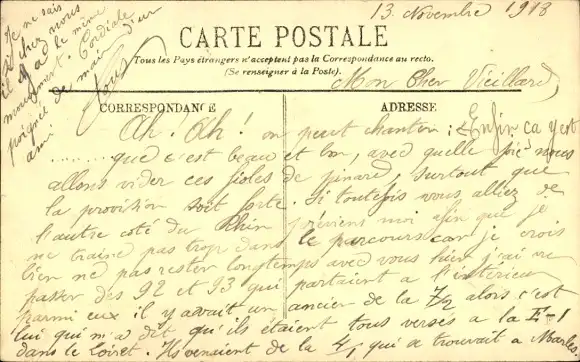 13. Novembre 1918
CARTE POSTALE
Tous les Pays étrangers n'acceptent pas la Correspondance au recto.
(Se renseigner à la Poste).
Mon Cher Vieillard,
CORRESPONDANCE
ADRESSE
Ah! Ah! on peut chanter : Enfin ça y est
que c'est beau et bon, avec quelle joie nous
allons vider ces fioles de pinard, surtout que
la provision soit forte. Si toutefois vous alliez de
l'autre coté du Rhin préviens moi afin que je
ne traine pas trop dans le parcours car je crois
bien ne pas rester longtemps avec vous hier j'ai vu
passer des 92 et 93 qui partaient à l'intérieur
parmi eux il y avait un ancien de la 7/2 alors c'est
lui qui m'a dit qu'ils étaient tous versés a la
dans le Loiret. Ils venaient de la qui se trouvait a Marles
Je ne sais
si chez vous
il y a de même
mouvement. Cordiale
poignée de main d'un
ami